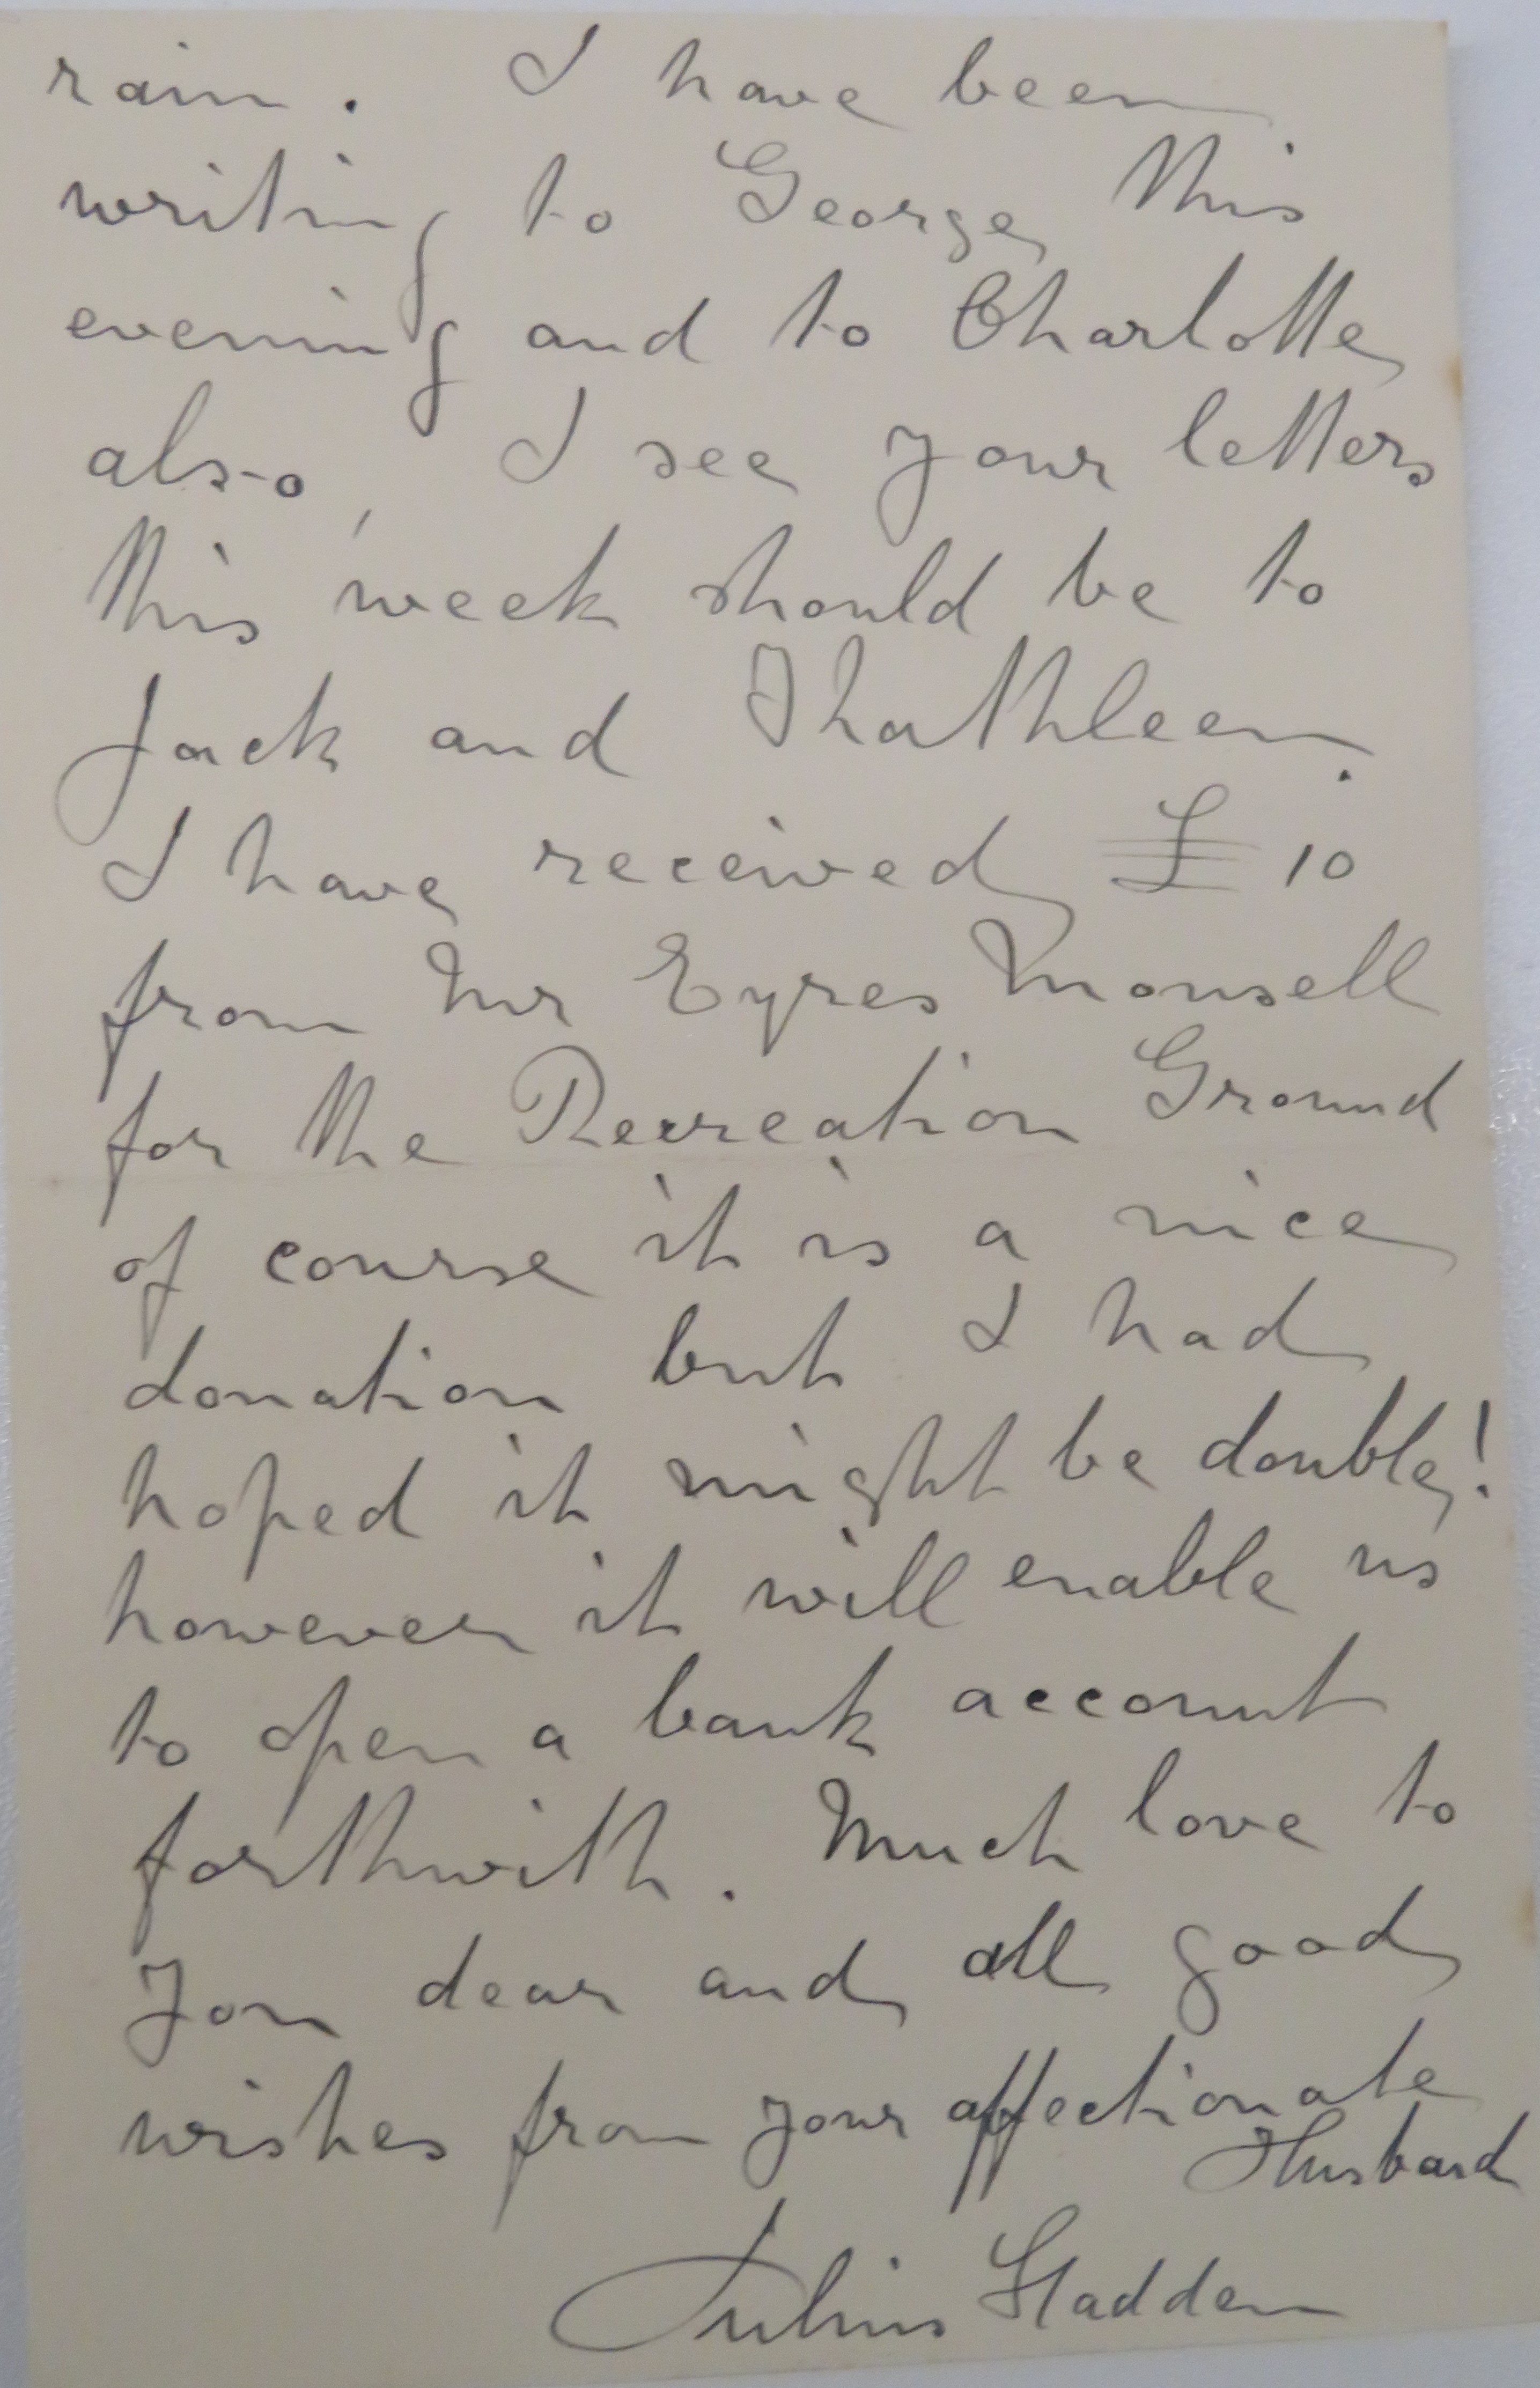 rain. I have been
writing to George this
evening and to Charlotte
also, I see your letters
this week should be to
Jack and Khathleen.
I have received £10
from Mr Eyres Monsell
for the Recreation Ground
of course it is a nice
donation but I had
hoped it might be double!
however it will enable us
to open a bank account
forthwith. Much love to
you dear and all good
wishes from your affectionate
Husband
Julius Sladden